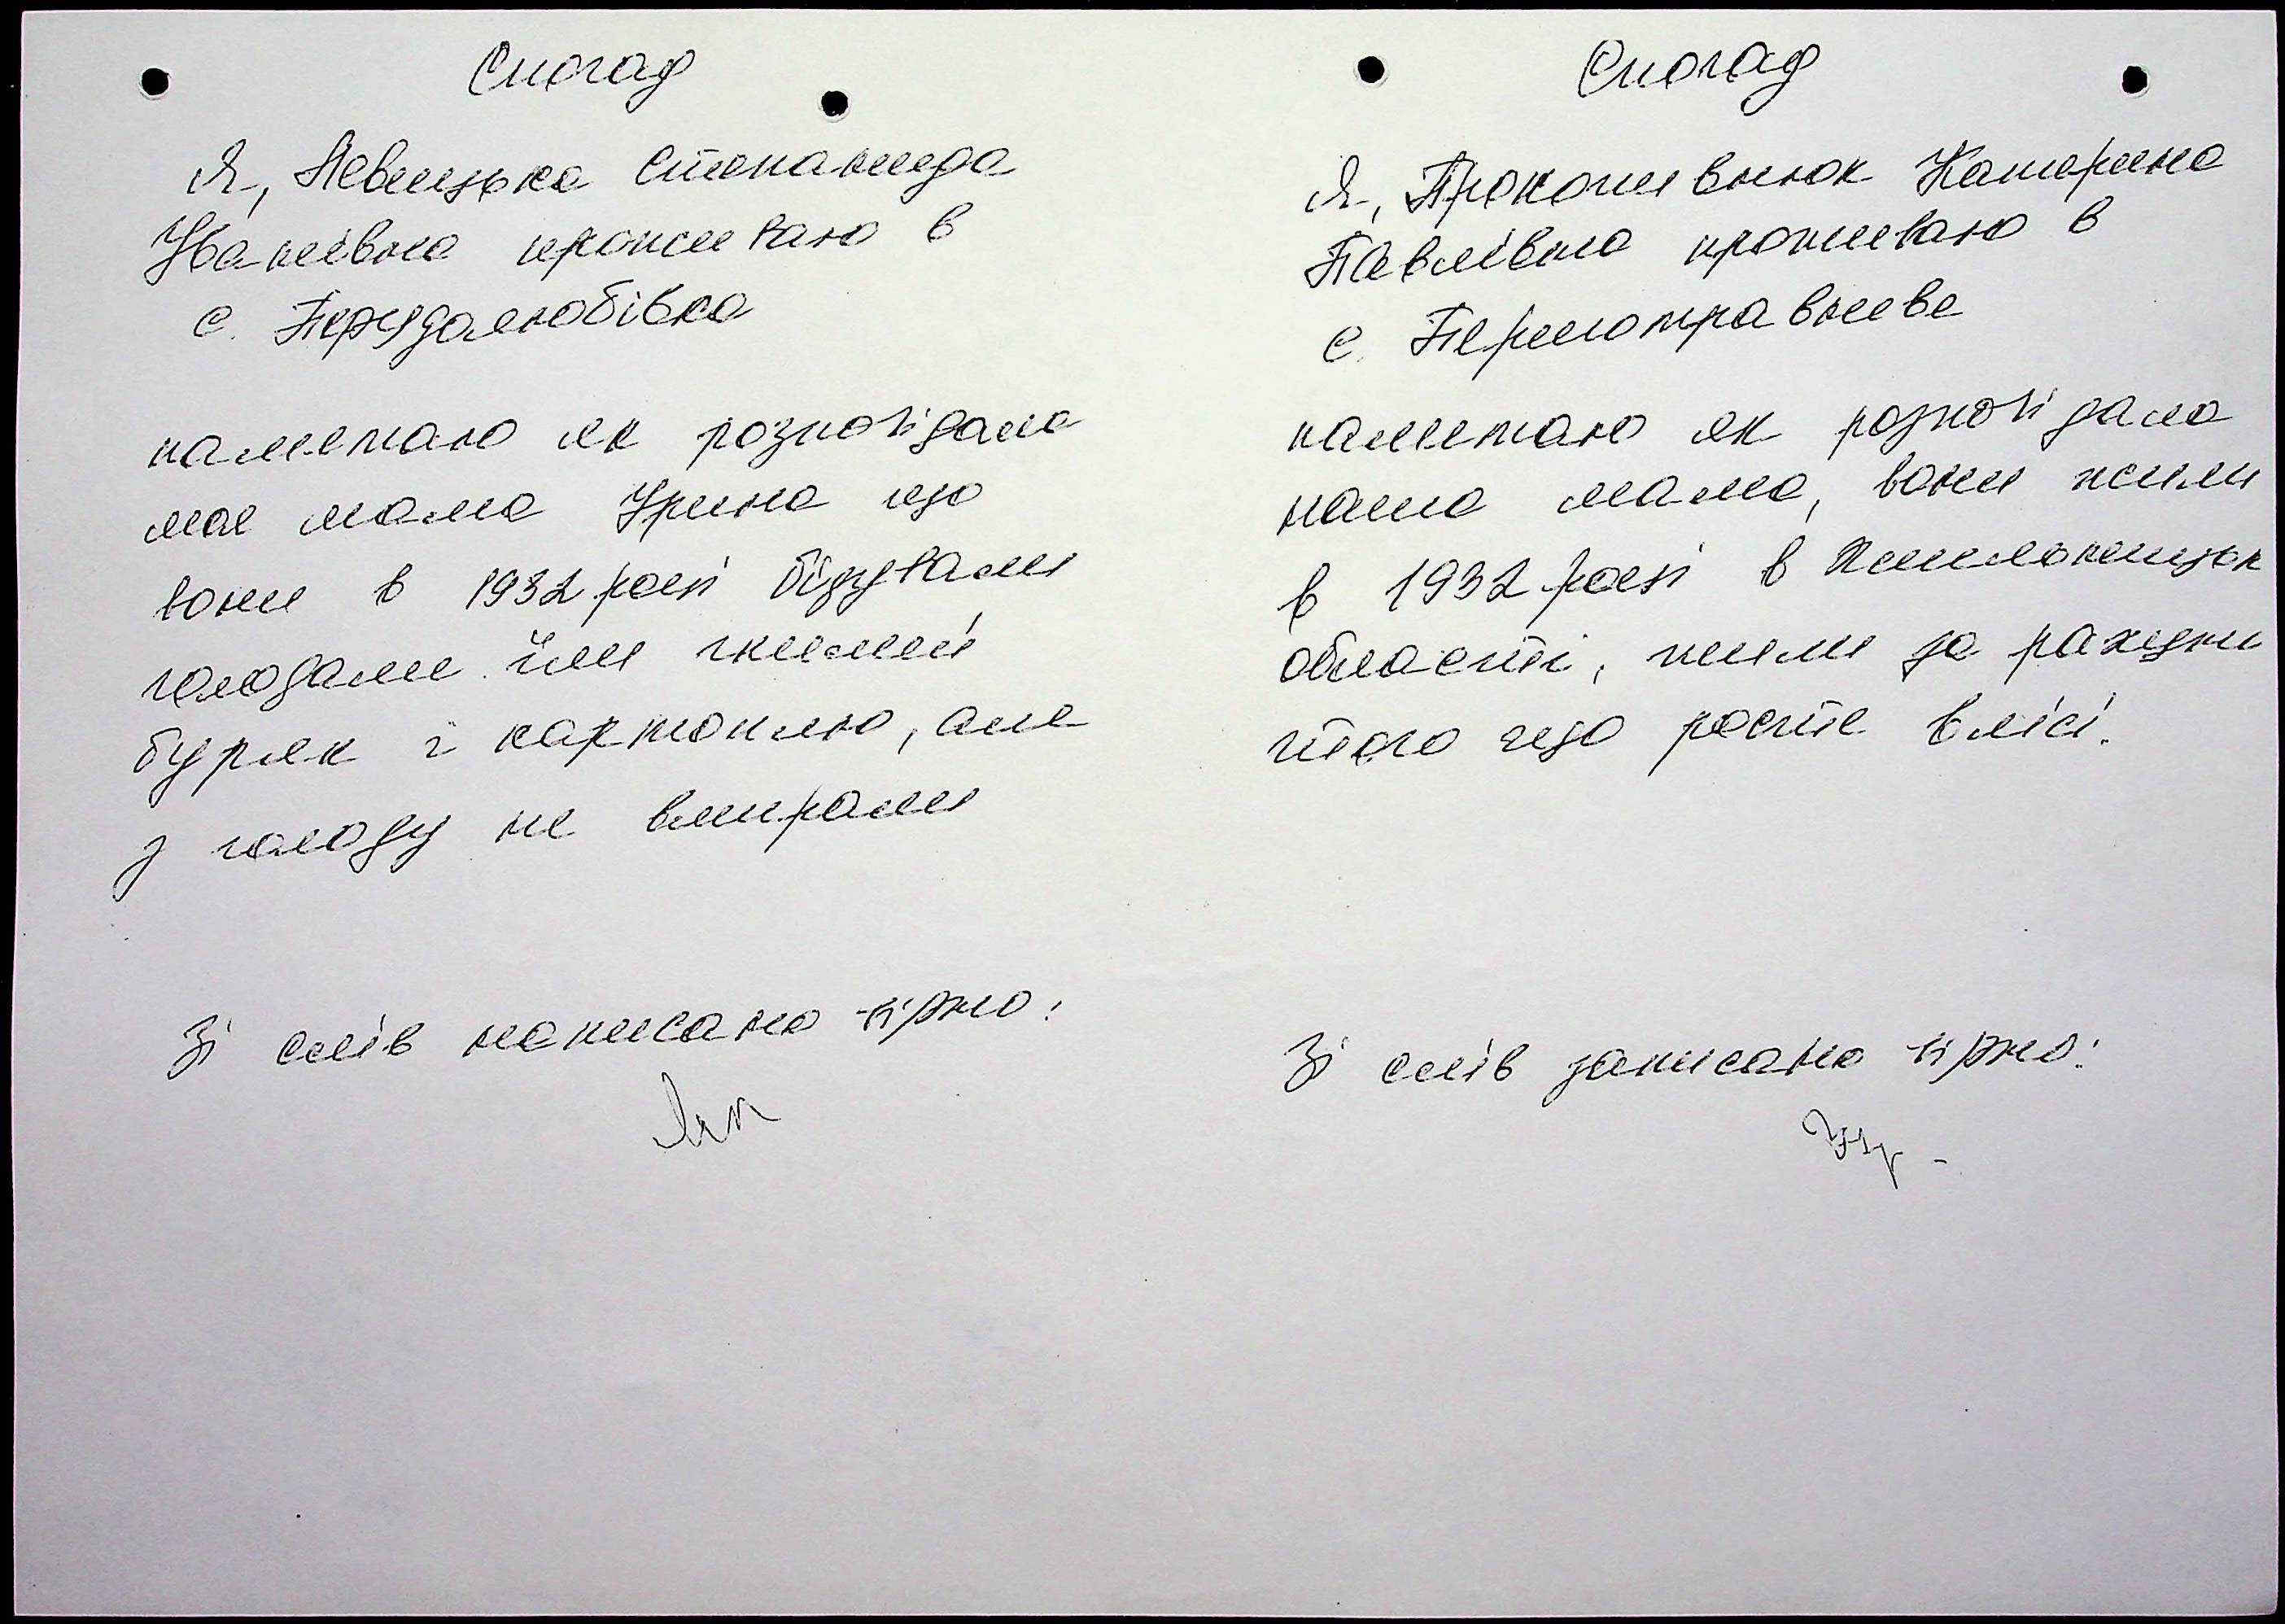 Спогад
Я, Левицька Степанида
Іванівна проживаю в
с.
памятаю як розповідала
моя мама Ірина що
вони в 1932 році бідували
голодали їли гнилий
буряк і картоплю, але
з голоду не вмирали
Зі слів написано вірно:
Спогад
Я, Прокопивнюк Катерина
Павлівна проживаю в
с. Першотравневе
памятаю як розповідала
наша мама, вони жили
в 1932 році в Житомирській
області, жили за рахунок
того що росте в лісі.
Зі слів записано вірно: